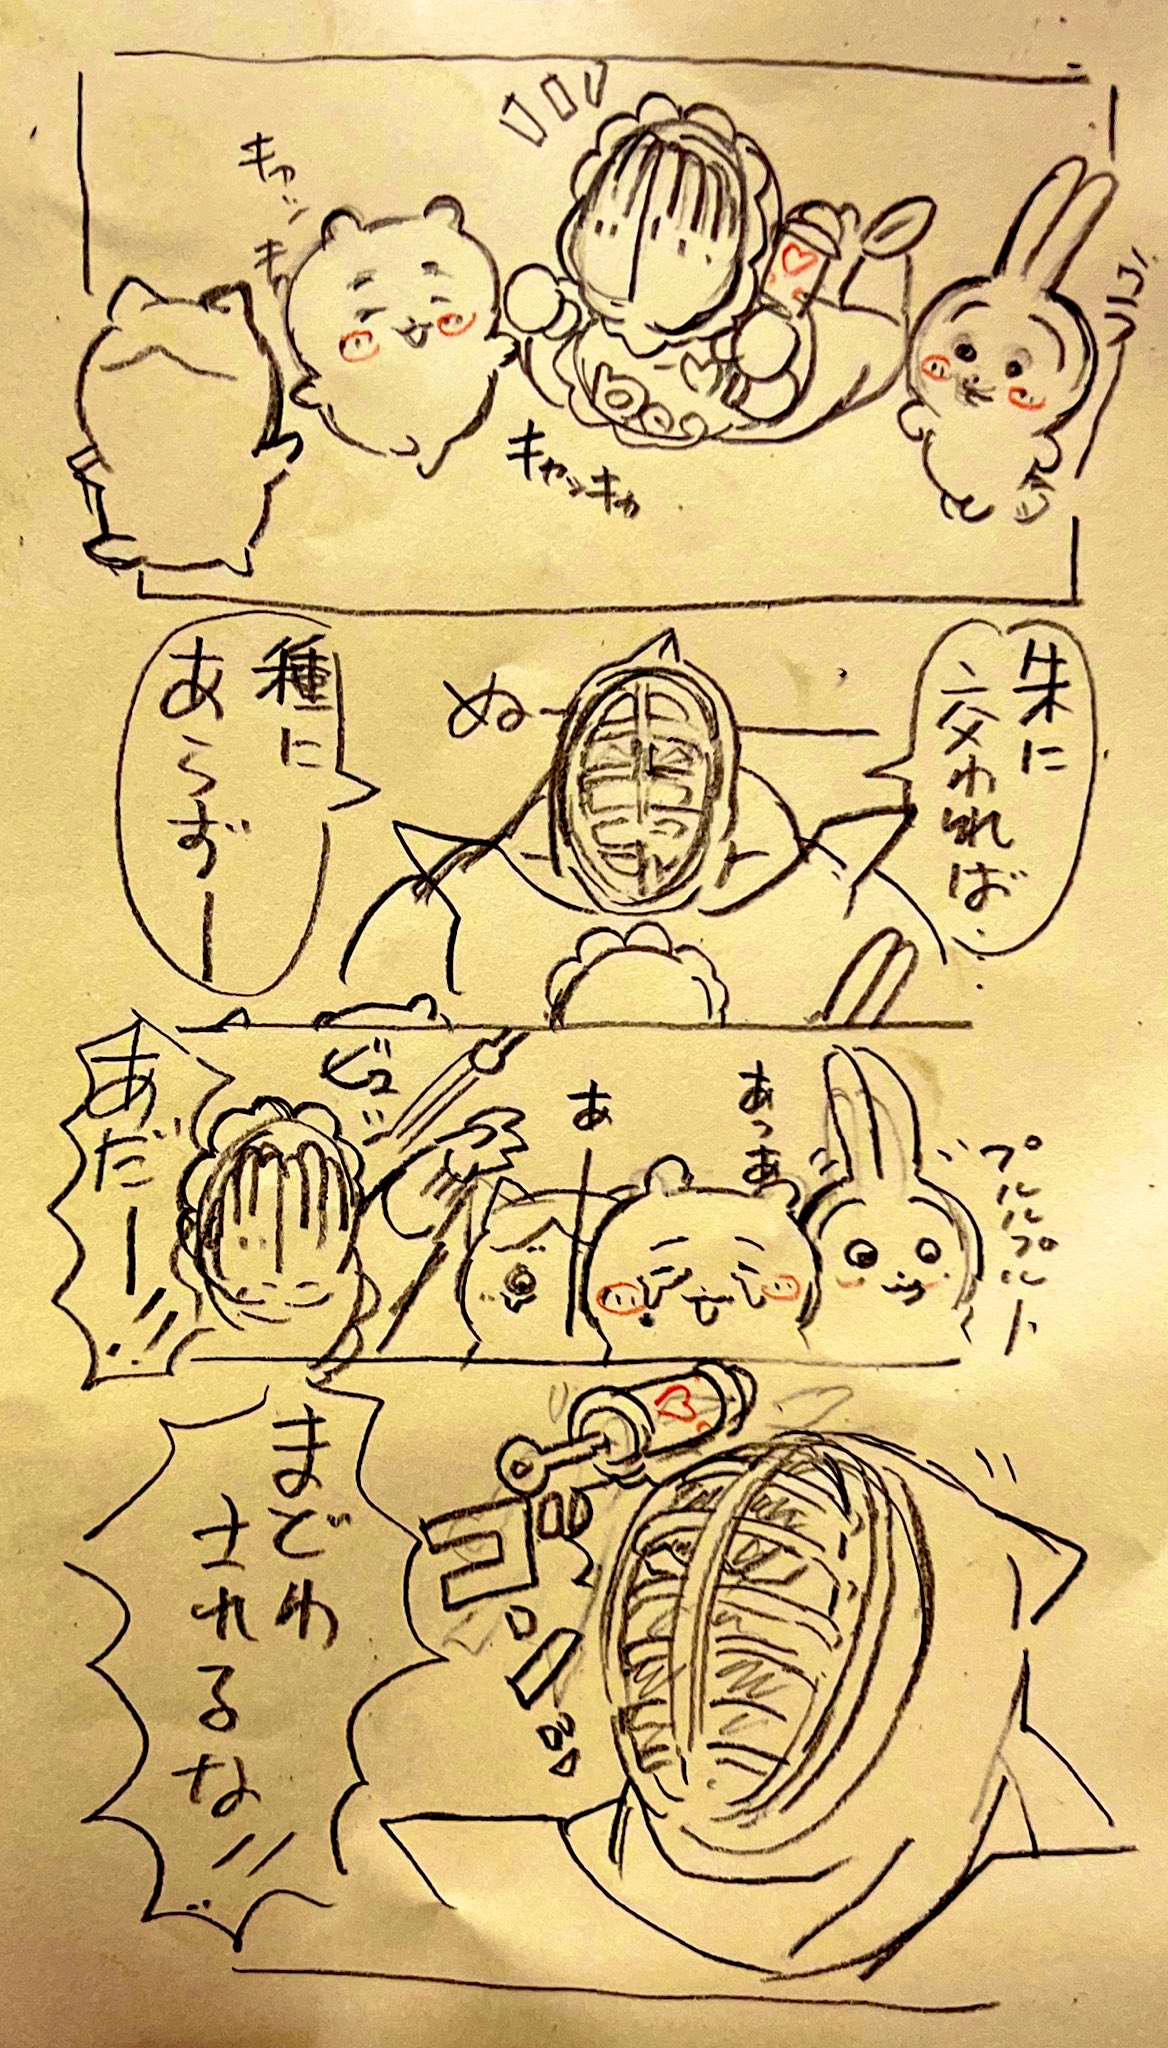 キャッ
キャ
キャッキャ
朱に
交われば…
ぬー
種に
あらずー
プルルプルト
あっあ
あ
ビュッ
あだー!!
まどわ
されるな!!